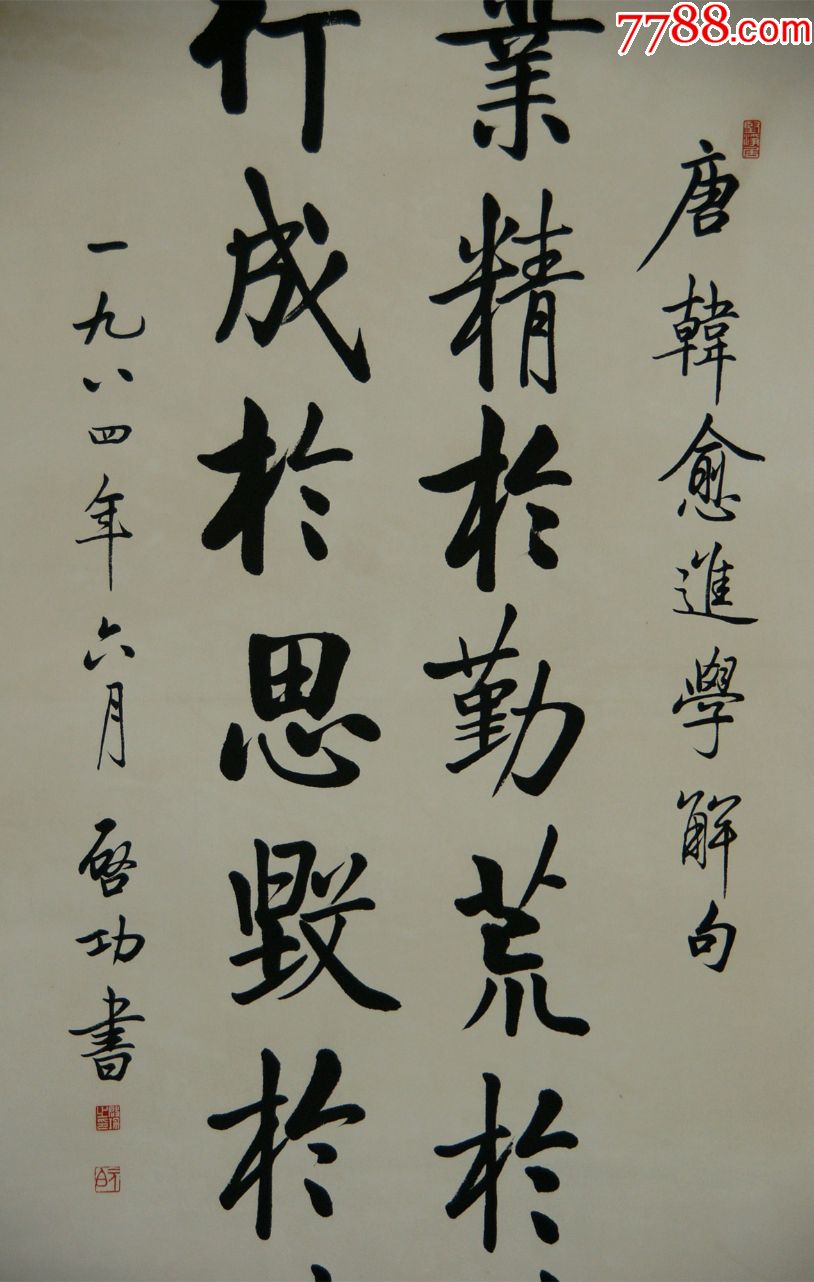 7788.com
唐韓愈進學解句
業精於勤荒於
行成於思毀於
一九八四年六月 啓功書